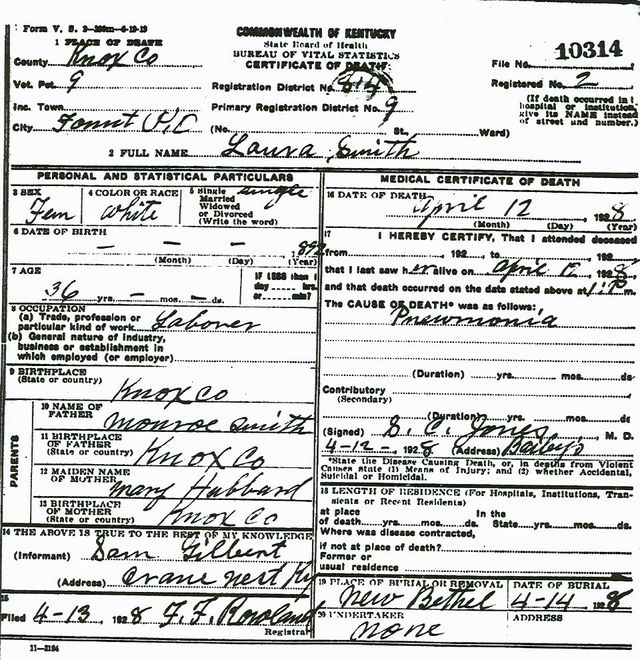 Form V. S. 2-200m-6-19-19
COMMONWEALTH OF KENTUCKY
State Board of Health
BUREAU OF VITAL STATISTICS
CERTIFICATE OF DEATH
File No. 10314
Registered No. 2
(If death occurred in a hospital or institution, give its NAME instead of street and number.)
1 PLACE OF DEATH
County Knox Co
Vot. Pct. 9
Registration District No. 814
Inc. Town
Primary Registration District No. 9
City
(No. St., Ward)
2 FULL NAME Laura Smith
PERSONAL AND STATISTICAL PARTICULARS
3 SEX Fem
4 COLOR OR RACE White
5 Single Married Widowed or Divorced (Write the word) single
6 DATE OF BIRTH
— — — 1892
(Month) (Day) (Year)
7 AGE
36 yrs. — mos. — ds.
IF LESS than 1 day hrs. or min?
8 OCCUPATION
(a) Trade, profession or particular kind of work Laborer
(b) General nature of industry, business or establishment in which employed (or employer)
9 BIRTHPLACE
(State or country) Knox Co
PARENTS
10 NAME OF FATHER Monroe Smith
11 BIRTHPLACE OF FATHER (State or country) Knox Co
12 MAIDEN NAME OF MOTHER Mary Hubbard
13 BIRTHPLACE OF MOTHER (State or country) Knox Co
14 THE ABOVE IS TRUE TO THE BEST OF MY KNOWLEDGE
(Informant) Sam Gilbert
(Address) Crane Nest Ky
15
Filed 4-13, 1928 F. F. Rowland
Registrar
11-3184
MEDICAL CERTIFICATE OF DEATH
16 DATE OF DEATH
April 12, 1928
(Month) (Day) (Year)
17 I HEREBY CERTIFY, That I attended deceased
from , 192 , to , 192
that I last saw her alive on April 12, 1928
and that death occurred on the date stated above at 1 P m.
The CAUSE OF DEATH* was as follows:
Pnewmonia
(Duration) yrs. mos. ds
Contributory
(Secondary)
(Duration) yrs. mos. ds
(Signed) S. C. Jones, M. D.
4-12, 1928 (Address) Baileys
*State the Disease Causing Death, or, in deaths from Violent Causes state (1) Means of Injury; and (2) whether Accidental, Suicidal or Homicidal.
18 LENGTH OF RESIDENCE (For Hospitals, Institutions, Transients or Recent Residents)
at place of death yrs. mos. ds. In the State yrs. mos. ds
Where was disease contracted,
if not at place of death?
Former or usual residence
19 PLACE OF BURIAL OR REMOVAL New Bethel
DATE OF BURIAL 4-14, 1928
20 UNDERTAKER none
ADDRESS